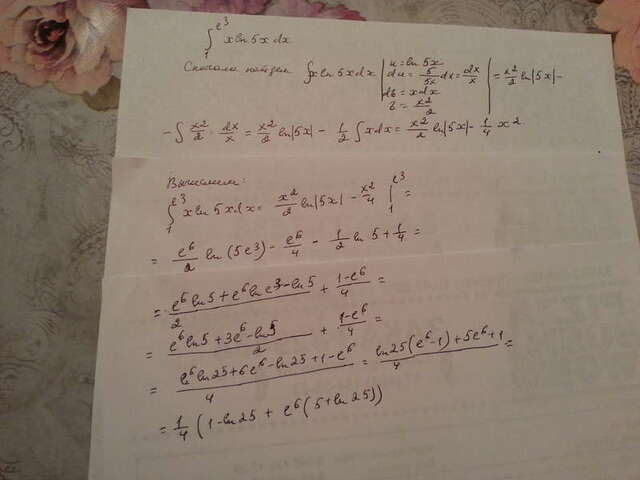 ∫₁^{e³} x ln 5x dx
Сначала найдем ∫x ln 5x dx | u = ln 5x
du = 5/5x dx = dx/x
dv = x dx
v = x²/2 | = x²/2 ln|5x| -
- ∫ x²/2 · dx/x = x²/2 ln|5x| - 1/2 ∫ x dx = x²/2 ln|5x| - 1/4 x²
Вычислим:
∫₁^{e³} x ln 5x dx = x²/2 ln|5x| - x²/4 |₁^{e³} =
= e⁶/2 ln (5e³) - e⁶/4 - 1/2 ln 5 + 1/4 =
= (e⁶ ln 5 + e⁶ ln e³ - ln 5)/2 + (1 - e⁶)/4 =
= (e⁶ ln 5 + 3e⁶ - ln 5)/2 + (1 - e⁶)/4 =
= (e⁶ ln 25 + 6e⁶ - ln 25 + 1 - e⁶)/4 = (ln 25 (e⁶ - 1) + 5e⁶ + 1)/4 =
= 1/4 (1 - ln 25 + e⁶ (5 + ln 25))